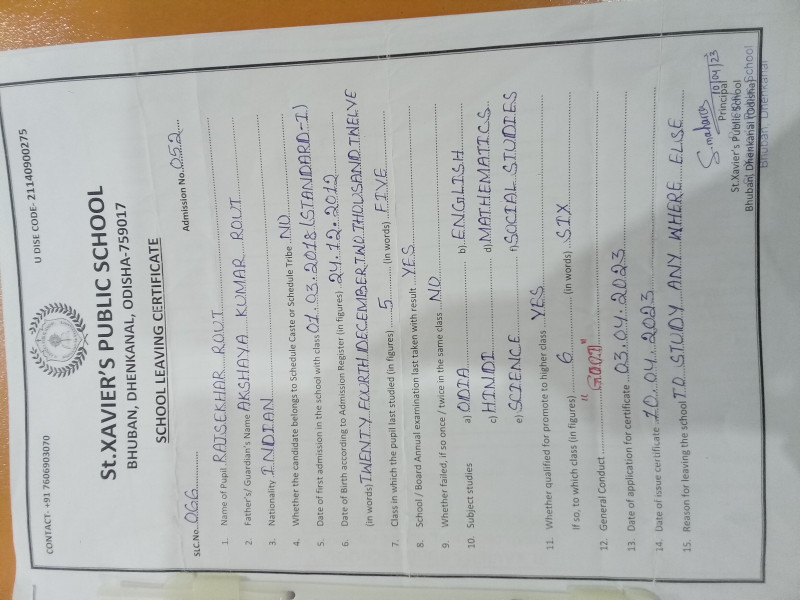 CONTACT- +91 7606903070 U DISE CODE- 21140900275
St.XAVIER'S PUBLIC SCHOOL
BHUBAN, DHENKANAL, ODISHA-759017
SCHOOL LEAVING CERTIFICATE
SLC.No. 066 Admission No. 052
1. Name of Pupil RAJSEKHAR ROUT
2. Father's/ Guardian's Name AKSHAYA KUMAR ROUT
3. Nationality INDIAN
4. Whether the candidate belongs to Schedule Caste or Schedule Tribe NO
5. Date of first admission in the school with class 01.03.2018 (STANDARD-I)
6. Date of Birth according to Admission Register (in figures) 24.12.2012
(in words) TWENTY FOURTH DECEMBER TWO THOUSAND TWELVE
7. Class in which the pupil last studied (in figures) 5 (in words) FIVE
8. School / Board Annual examination last taken with result YES
9. Whether failed, if so once / twice in the same class NO
10. Subject studies a) ODIA b) ENGLISH
c) HINDI d) MATHEMATICS
e) SCIENCE f) SOCIAL STUDIES
11. Whether qualified for promote to higher class YES
If so, to which class (in figures) 6 (in words) SIX
12. General Conduct "GOOD"
13. Date of application for certificate 03.04.2023
14. Date of issue certificate 10.04.2023
15. Reason for leaving the school TO STUDY ANY WHERE ELSE
10/04/23
Principal
St.Xavier's Public School
Bhuban, Dhenkanal (Odisha)
Bhuban, Dhenkanal